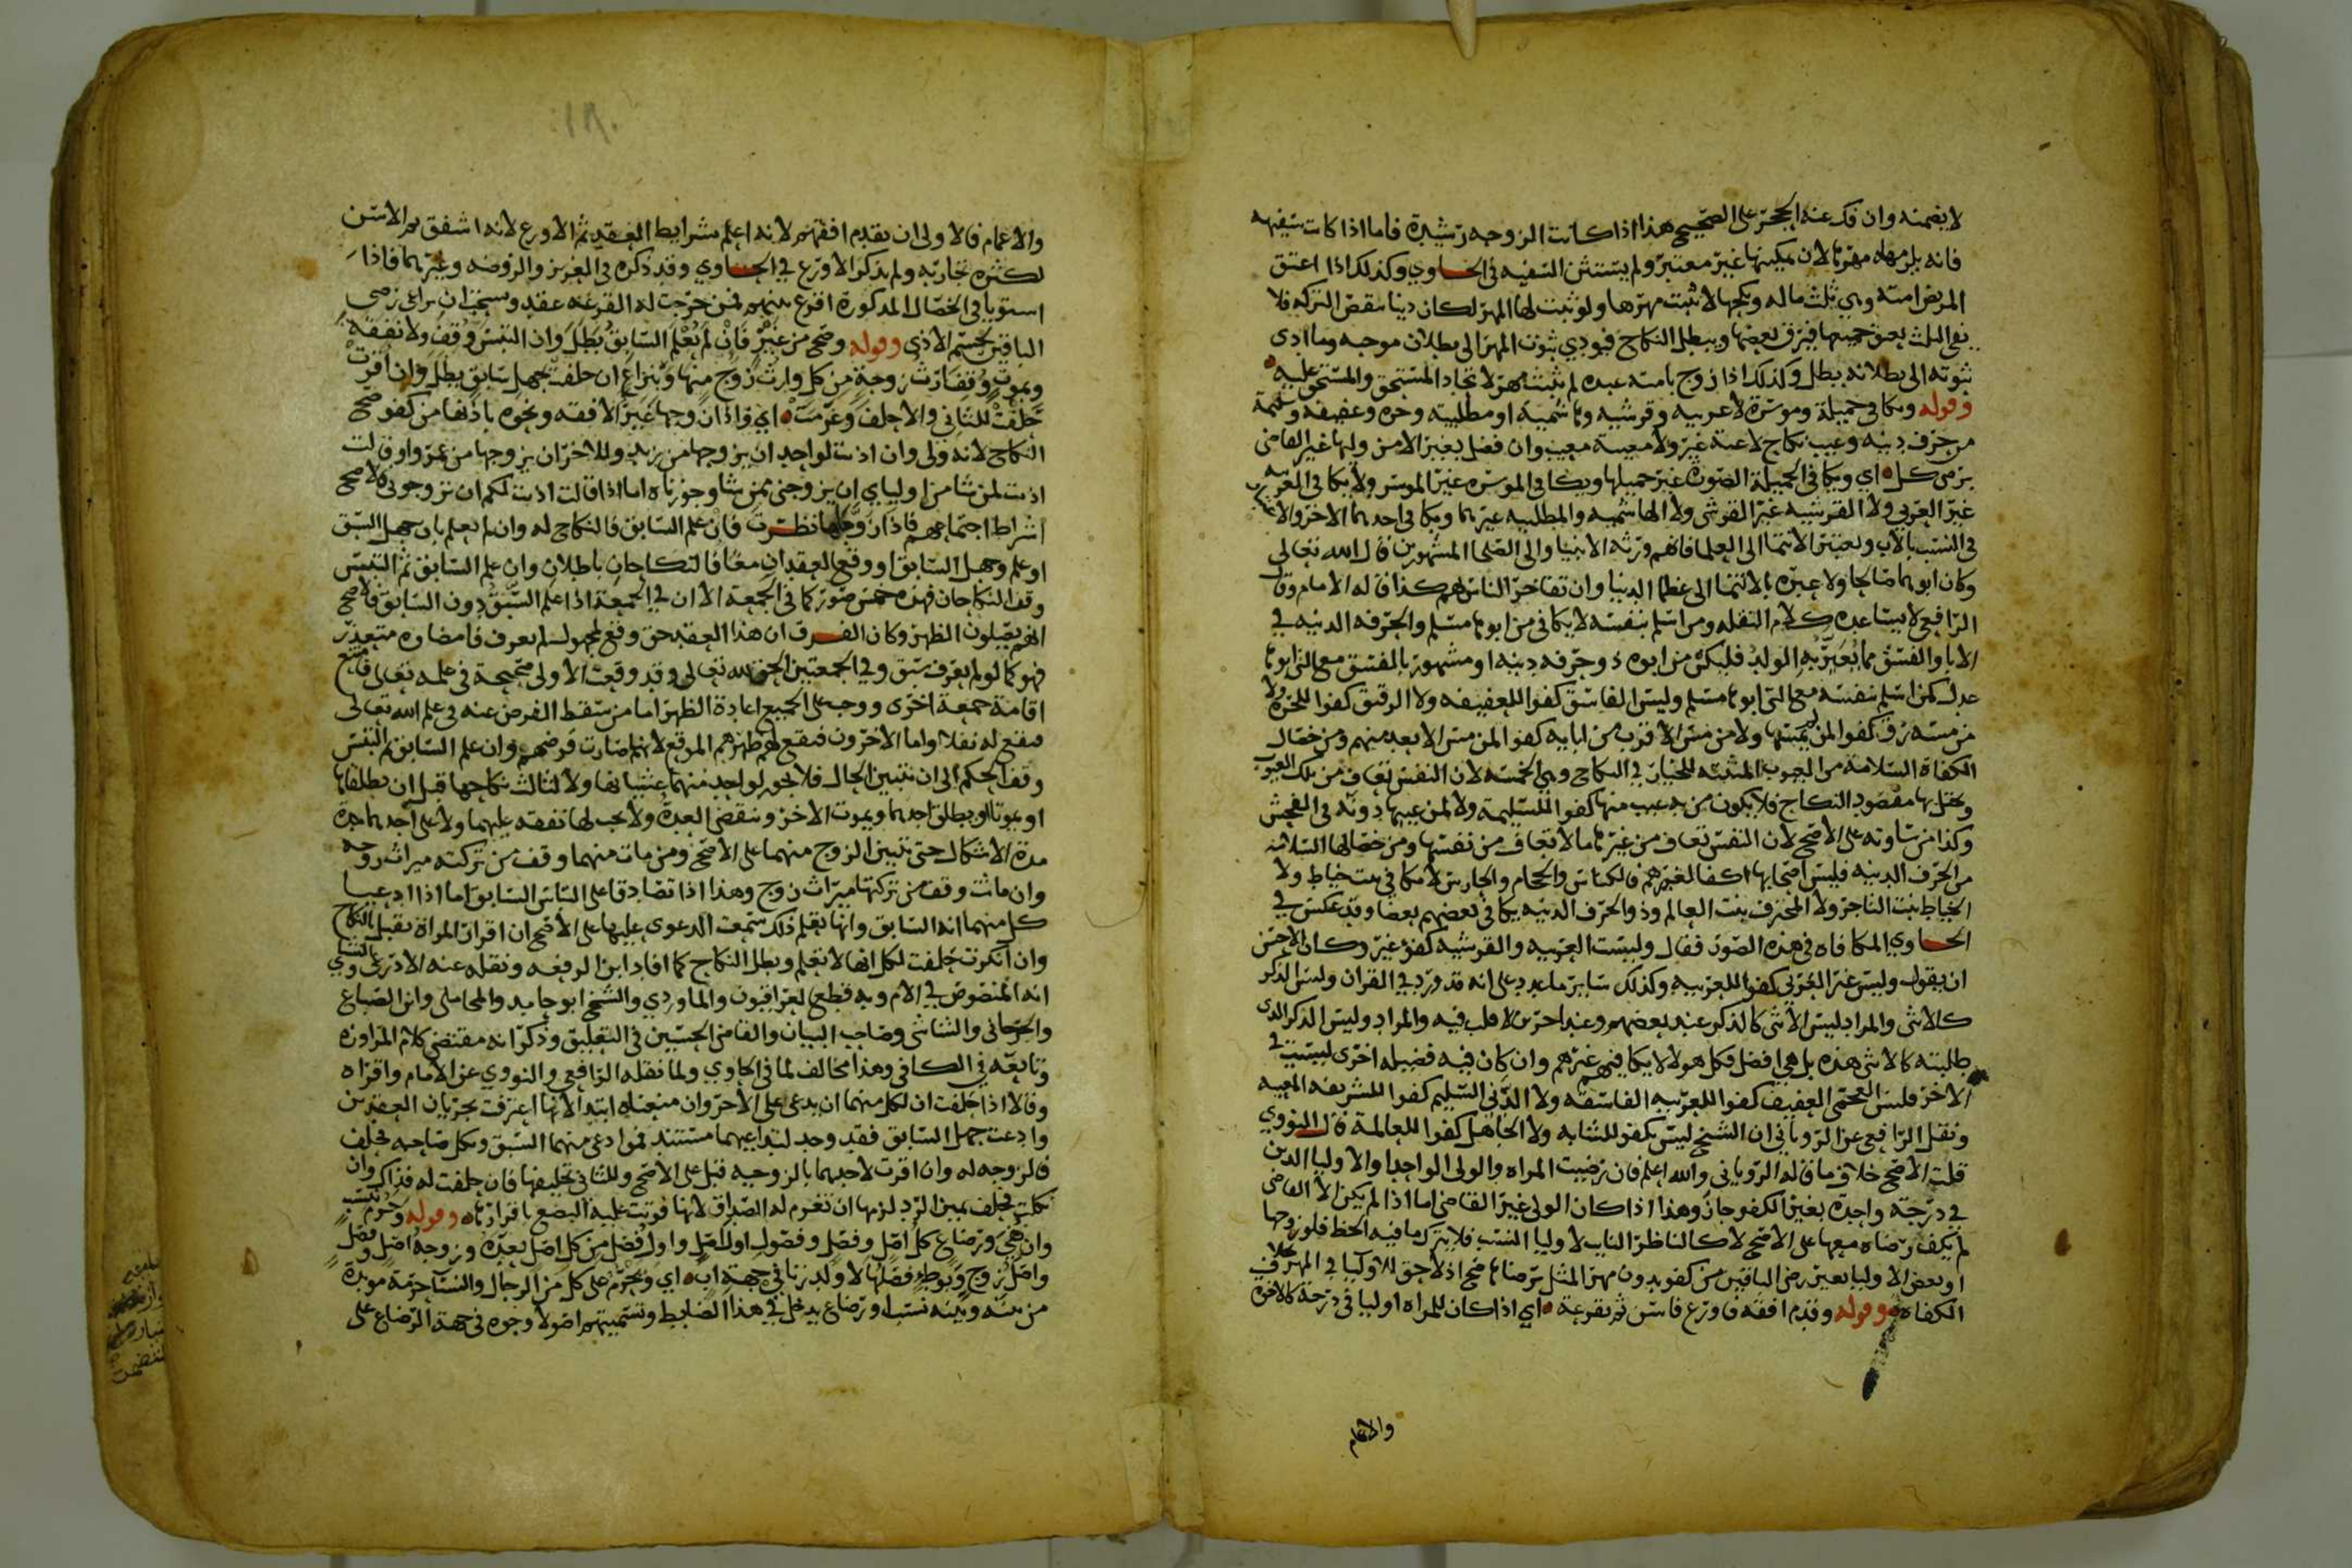 لا يضمنه وان فك عنه الحجر على الصحيح هذا اذا كانت الزوجه رشيدة فاما اذا كانت سفيهه
فانه يلزمه لها مهرها لان تمكينها غير معتبر ولم يستثن السفيه في الحاوي وكذلك اذا اعتق
المريض امته وهي ثلث ماله ونكحها لا يثبت مهرها ولو ثبت لها المهر لكان دينا ينقض التركه فلا
يفي الثلث بعتق جميعها فيرق بعضها ويبطل النكاح فيودي ثبوت المهر الى بطلان موجبه وما ادى
ثبوته الى بطلانه بطل وكذلك اذا زوج بامته عبده لم يثبت مهر لاتحاد المستحق والمستحق عليه
وقوله ويكافي جميلة وموسرة لا عربيه وقرشيه وهاشميه او مطلبيه وحره وعفيفه وسليمة
من حرف دنيه وعيب نكاح لاعنة غير ولا معيبة معيب وان فضل بغير الامن وليها غير القاضي
برضى كل اي ويكافي الجميلة الصورة غير جميلها ويكافي الموسره غير الموسر ولا يكافي العربيه
غير العربي ولا القرشيه غير القرشي ولا الهاشميه والمطلبيه غيرهما ويكافي احدهما الاخر والاعتبار
في النسب بالاب ويعتبر الانتما الى العلما فانهم ورثه الانبيا والى الصلحا المشهورين قال الله تعالى
وكان ابوهما صالحا ولا عبره بالانتما الى عظما الدنيا وان تفاخر الناس بهم كذا قاله الامام وقال
الرافعي لا يساعده كلام النقله ومن اسلم بنفسه لا يكافي من ابوها مسلم والحرفه الدنيه في
الابا والفسق مما يعير به الولد فليكن من ابوه ذو حرفه دنيه او مشهور بالفسق مع التي ابوها
عدل كمن اسلم بنفسه مع التي ابوها مسلم وليس الفاسق كفوا للعفيفه ولا الرقيق كفوا للحره ولا
من مسه رق كفوا لمن لم يمسها ولا من مس الاقرب من ابايه كفوا لمن مس الابعد منهم ومن خصال
الكفاة السلامه من العيوب المثبته للخيار في النكاح وهي الخمسه لان النفس تعاف من تلك العيوب
ويختل بها مقصود النكاح فلا يكون من به عيب منها كفوا للسليمة ولا لمن عيبها دونه في الفحش
وكذا من ساوته على الاصح لان النفس تعاف من غيرها ما لا تعاف من نفسها ومن خصالها السلامه
من الحرف الدنيه فليس اصحابها اكفا لغيرهم فالكناس والحجام والحارس لا يكافي بنت خياط ولا
الخياط بنت التاجر ولا المحترف بنت العالم وذو الحرف الدنيه يكافي بعضهم بعضا وقد عكس في
الحاوي المكافاه في هذه الصور فقال وليست العربيه والقرشيه كفو غير وكان الاحسن
ان يقول وليس غير العربي كفوا للعربيه وكذلك ساير ما عدد على انه قد ورد في القران وليس الذكر
كالانثى والمراد ليس الانثى كالذكر عند بعضهم وعند اخرين لا قلب فيه والمراد وليس الذكر الذي
طلبته كالانثى هذه بل هي افضل فكل هولا لا يكافيهم غيرهم وان كان فيه فضيله اخرى ليست في
الاخر فليس العجمي العفيف كفوا للعربيه الفاسقه ولا الدني السليم كفوا للشريفه المعيبه
ونقل الرافعي عن الروياني ان الشيخ ليس بكفو للشابه ولا الجاهل كفوا للعالمة قال النووي
قلت الاصح خلاف ما قاله الروياني والله اعلم فان رضيت المراه والولي الواحد او الاوليا الذين
في درجة واحدة بغير الكفو جاز وهذا اذا كان الولي غير القاضي اما اذا لم يكن الا القاضي
لم يكف رضاه معها على الاصح لانه كالناظر النايب لاوليا النسب فلا يترك ما فيه الحظ فلو زوجها
او بعض الاوليا بغير رضى الباقين من كفو بدون مهر المثل برضاها صح اذ لا حق للاوليا في المهر بخلاف
الكفاه وقوله وقدم افقه فاورع فاسن ثم بقرعة اي اذا كان للمراه اوليا في درجة كالاخوه
والاعمام
والاعمام فالاولى ان يقدم افقههم لانه اعلم بشرايط العقد ثم الاورع لانه اشفق ثم الاسن
لكثره تجاربه ولم يذكر الاورع في الحاوي وقد ذكره في العزيز والروضه وغيرهما فاذا
استويا في الخصال المذكورة اقرع بينهم فمن خرجت له القرعه عقد ويستحب ان يراعى رضى
الباقين لحسم الاذى وقوله وصح من غير فان لم يعلم السابق بطل وان التبس وقف ولا نفقة
وبموت وقف ارث زوجة من كل وارث زوج منها وبنزاع ان حلفت بجهل سابق بطل وان اقرت
حلفت للثاني والا حلف وغرمت اي واذا زوجها غير الافقه ونحوه باذنها من كفو صح
النكاح لانه ولي وان اذنت لواحد ان يزوجها من زيد وللاخر ان يزوجها من عمرو او قالت
اذنت لمن شا من اوليايي ان يزوجني ممن شا وجوزناه اما اذا قالت اذنت لكم ان تزوجوني فالاصح
اشتراط اجتماعهم فاذا زوجها نظرت فان علم السابق فالنكاح له وان لم يعلم بان جهل السبق
او علم وجهل السابق او وقع العقدان معا فالنكاحان باطلان وان علم السابق ثم التبس
وقف النكاحان فهذه خمس صور كما في الجمعة الا ان في الجمعة اذا علم السبق دون السابق فالاصح
انهم يصلون الظهر وكان الفرق ان هذا العقد حق وقع لمجهول لم يعرف فامضاوه متعذر
فهو كما لو لم يعرف سبق وفي الجمعتين الحق لله تعالى وقد وقعت الاولى صحيحة في علمه تعالى فامتنع
اقامة جمعة اخرى ووجب على الجميع اعادة الظهر اما من سقط الفرض عنه في علم الله تعالى
فيقع له نفلا واما الاخرون فيقع لهم ظهرهم الموقع لانها صارت فرضهم وان علم السابق ثم التبس
وقف الحكم الى ان يتبين الحال فلا يجوز لواحد منهما غشيانها ولا لثالث نكاحها قبل ان يطلقاها
او يموتا او يطلق احدهما ويموت الاخر وتنقضي العدة ولا يجب لها نفقه عليهما ولا على احدهما مدة
مدة الاشكال حتى يتبين الزوج منهما على الاصح ومن مات منهما وقف من تركته ميراث زوجه
وان ماتت وقف من تركتها ميراث زوج وهذا اذا تصادقا على التباس السابق اما اذا ادعيا
كل منهما انه السابق وانها تعلم ذلك سمعت الدعوى عليها على الاصح ان اقرار المراة يقبل بالنكاح
وان انكرت حلفت لكل انها لا تعلم وبطل النكاح كما افاد ابن الرفعه ونقله عنه الاذرعي والسبكي
انه المنصوص في الام وبه قطع العراقيون والماوردي والشيخ ابو حامد والمحاملي وابن الصباغ
والجرجاني والشاشي وصاحب البيان والقاضي الحسين في التعليق وذكر انه مقتضى كلام المراوزه
وتابعه في الكافي وهذا مخالف لما في الحاوي ولما نقله الرافعي والنووي عن الامام واقراه
وقالا اذا حلفت ان لكل منهما ان يدعي على الاخر وان منعناه ابتدا لانها اعترفت بجريان العقدين
وادعت جهل السابق فقد وجد لتداعيهما مستند فمن ادعى منهما السبق ونكل صاحبه فحلف
فالزوجه له وان اقرت لاحدهما بالزوجيه قبل على الاصح وللثاني تحليفها فان حلفت له فذاك وان
نكلت فحلف يمين الرد لزمها ان تغرم له الصداق لانها فوتت عليه البضع باقرارها وقوله وحرم بنسب
وان نفي ورضاع كل اصل وفصل وفصول اول اصل واول فصل من كل اصل بعده وزوجة اصل وفصل
واصل زوج وبوطء فصلها لا ولد زنا في جهة اب اي ويحرم على كل من الرجال والنسا حرمة موبدة
من بينه وبينه نسب او رضاع يدخل في هذا الضابط وتسميتهم اصولا وجوه في جهة الرضاع على